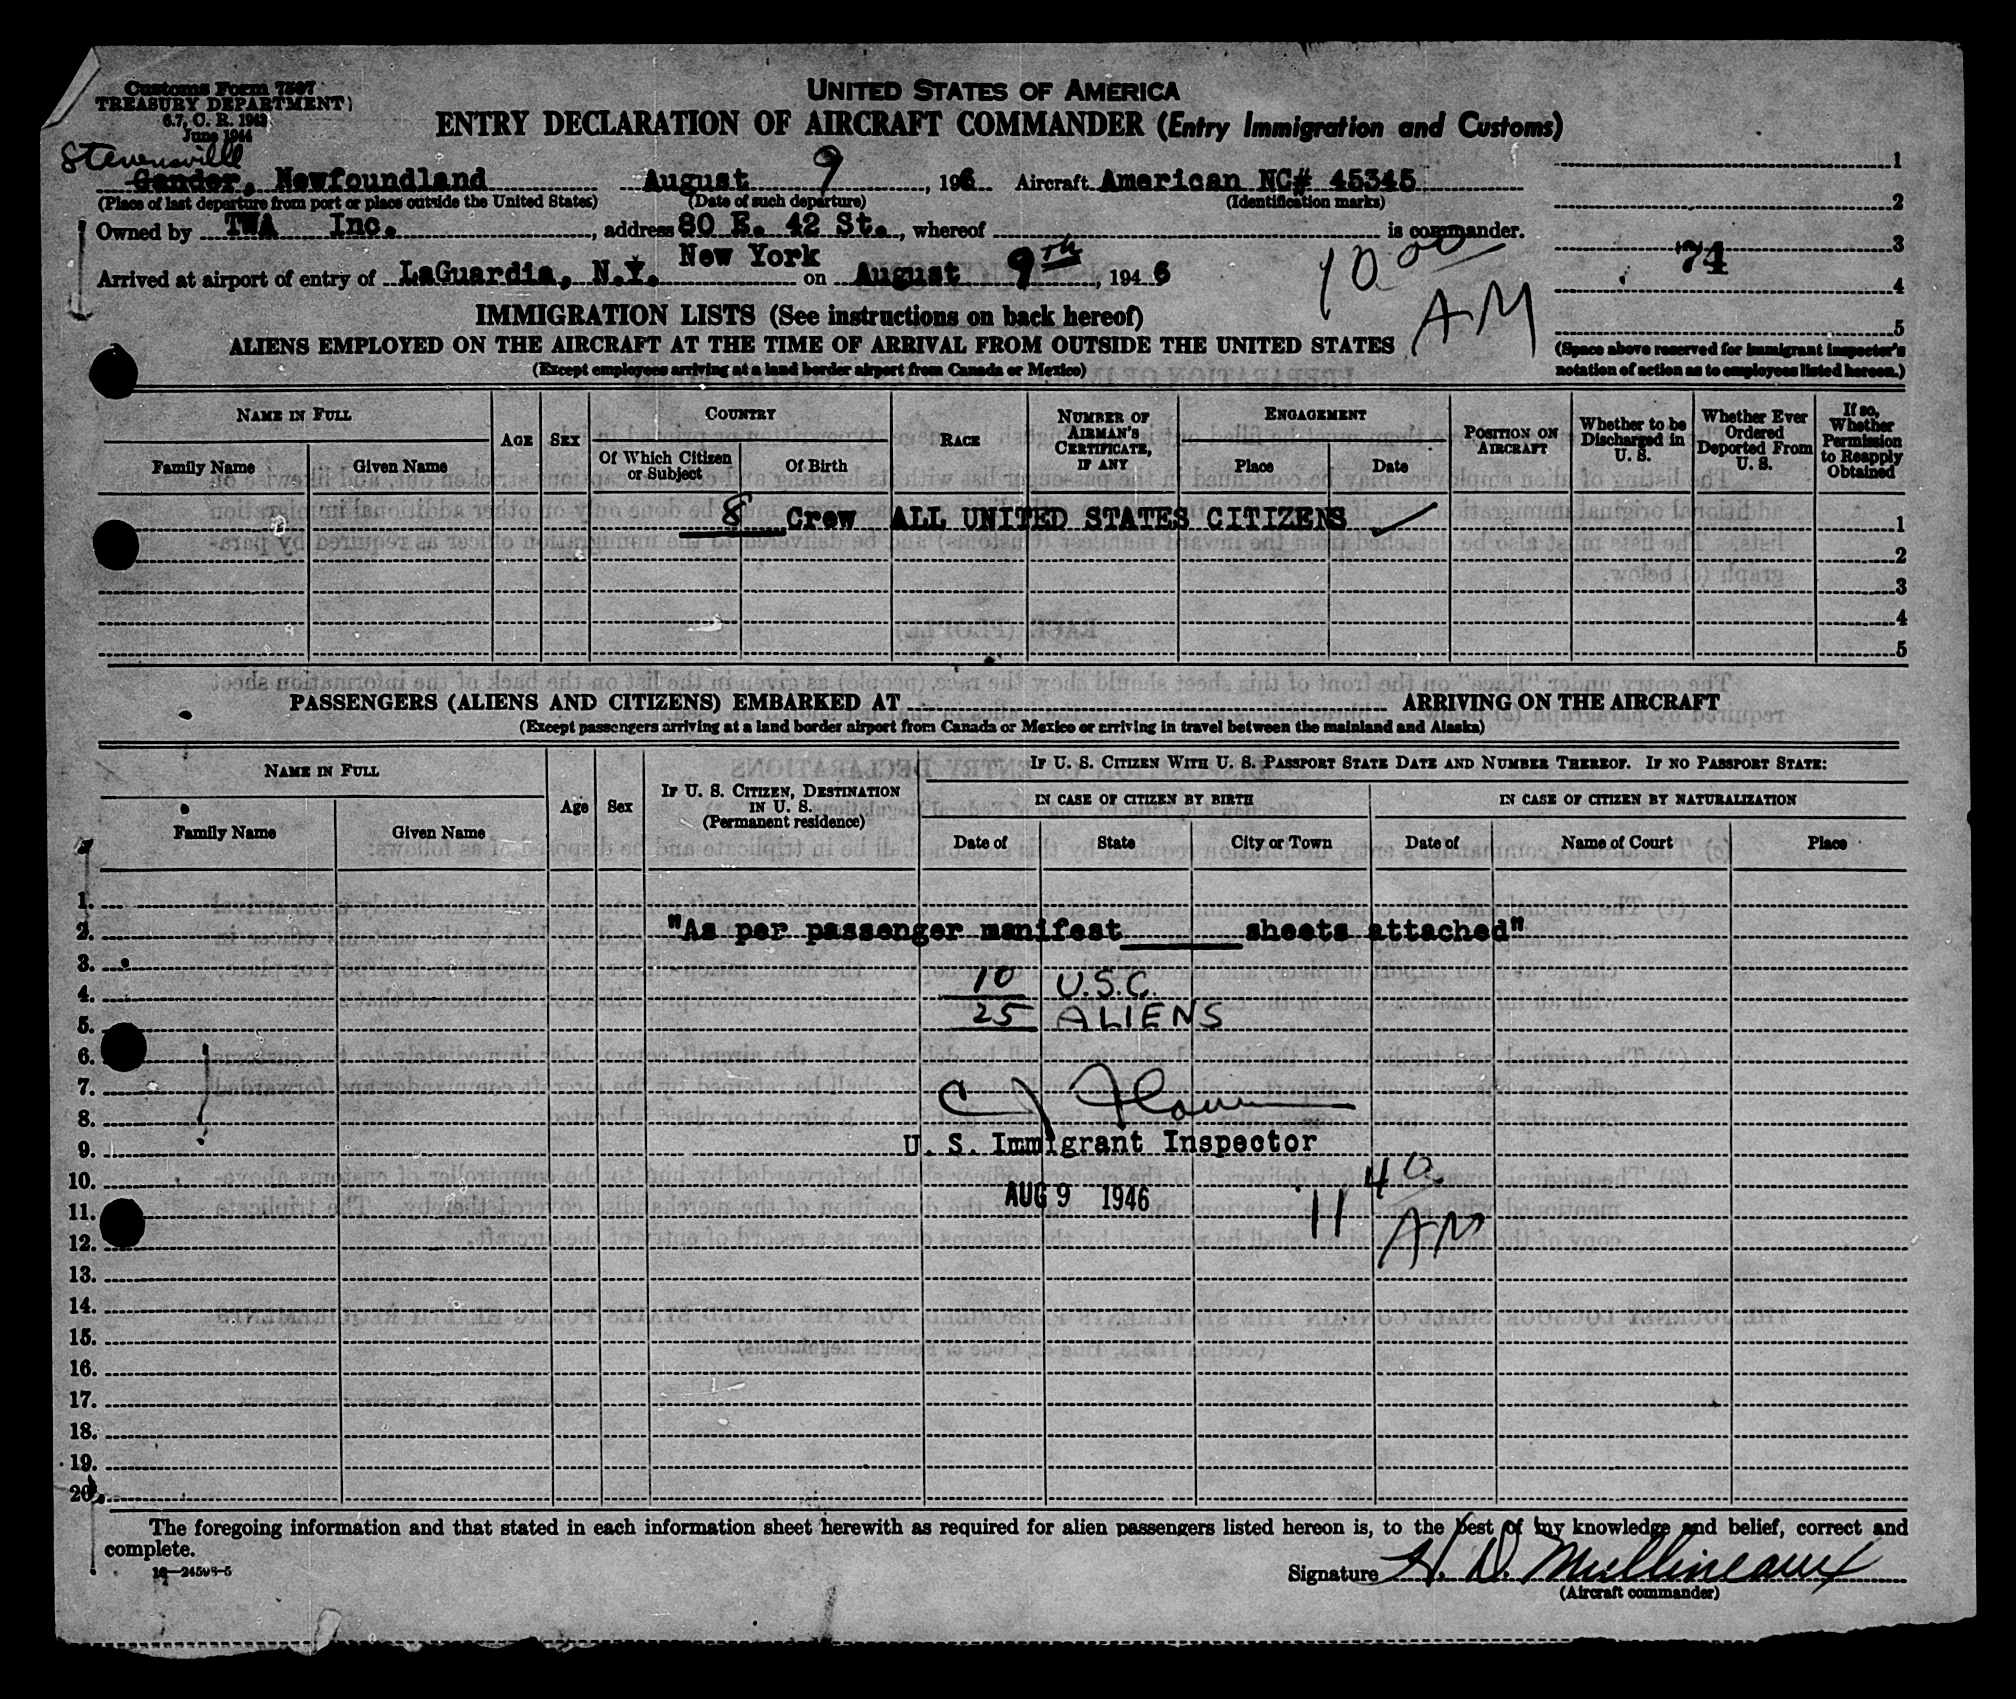 Customs Form 7507
TREASURY DEPARTMENT
6.7, C. R. 1943
June 1944
UNITED STATES OF AMERICA
ENTRY DECLARATION OF AIRCRAFT COMMANDER (Entry Immigration and Customs)
Stevensville
Gander, Newfoundland August 9, 1946 Aircraft American NC# 45345
(Place of last departure from port or place outside the United States) (Date of such departure) (Identification marks)
Owned by TWA Inc., address 80 E. 42 St., whereof is commander.
New York
Arrived at airport of entry of LaGuardia, N.Y. on August 9th, 1946
10 00 AM
1
2
3
74
4
5
(Space above reserved for immigrant inspector's
notation of action as to employees listed hereon.)
IMMIGRATION LISTS (See instructions on back hereof)
ALIENS EMPLOYED ON THE AIRCRAFT AT THE TIME OF ARRIVAL FROM OUTSIDE THE UNITED STATES
(Except employees arriving at a land border airport from Canada or Mexico)
NAME IN FULL
Family Name
Given Name
AGE
SEX
COUNTRY
Of Which Citizen or Subject
Of Birth
RACE
NUMBER OF AIRMAN'S CERTIFICATE, IF ANY
ENGAGEMENT
Place
Date
POSITION ON AIRCRAFT
Whether to be Discharged in U. S.
Whether Ever Ordered Deported From U. S.
If so, Whether Permission to Reapply Obtained
8 Crew ALL UNITED STATES CITIZENS 1
2
3
4
5
PASSENGERS (ALIENS AND CITIZENS) EMBARKED AT ARRIVING ON THE AIRCRAFT
(Except passengers arriving at a land border airport from Canada or Mexico or arriving in travel between the mainland and Alaska)
NAME IN FULL
Family Name
Given Name
Age
Sex
IF U. S. CITIZEN, DESTINATION IN U. S.
(Permanent residence)
IF U. S. CITIZEN WITH U. S. PASSPORT STATE DATE AND NUMBER THEREOF. IF NO PASSPORT STATE:
IN CASE OF CITIZEN BY BIRTH
IN CASE OF CITIZEN BY NATURALIZATION
Date of
State
City or Town
Date of
Name of Court
Place
1.
2. "As per passenger manifest sheets attached"
3.
4. 10 U.S.C.
5. 25 ALIENS
6.
7.
8.
9. U. S. Immigrant Inspector
10.
11. AUG 9 1946 11 40 AM
12.
13.
14.
15.
16.
17.
18.
19.
20.
The foregoing information and that stated in each information sheet herewith as required for alien passengers listed hereon is, to the best of my knowledge and belief, correct and
complete.
Signature H. D. Mullineaux
(Aircraft commander)